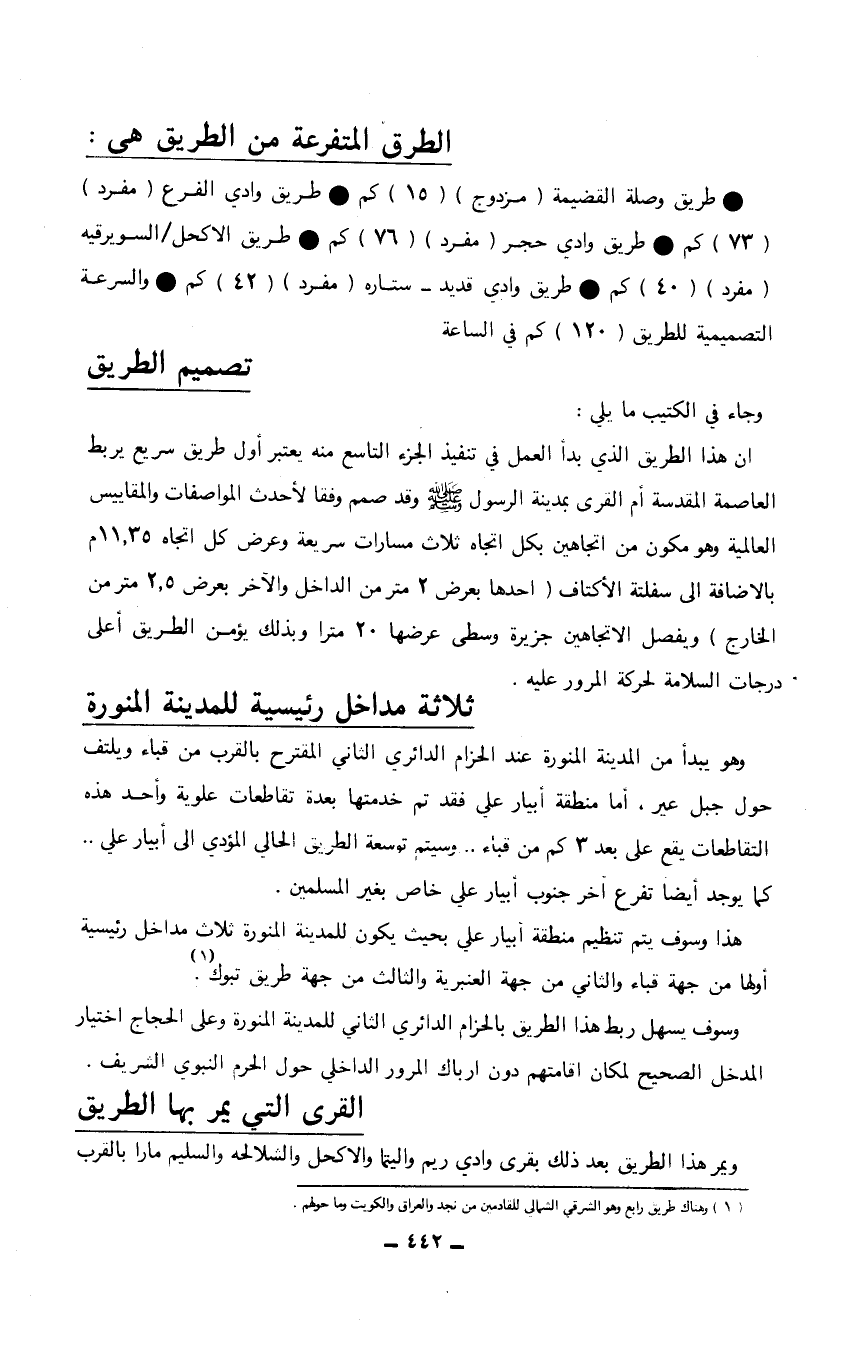 الطرق المتفرعة من الطريق هي :
● طريق وصلة القضيمة ( مـزدوج ) ( ١٥ ) كم ● طـريق وادي الفـرع ( مفـرد )
( ٧٣ ) كم ● طريق وادي حجـر ( مفـرد ) ( ٧٦ ) كم ● طـريق الاكحل/السـويرقيه
( مفرد ) ( ٤٠ ) كم ● طريق وادي قديد ـ ستـاره ( مفـرد ) ( ٤٢ ) كم ● والسرعـة
التصميمية للطريق ( ١٢٠ ) كم في الساعة
تصميم الطريق
وجاء في الكتيب ما يلي :
ان هذا الطريق الذي بدأ العمل في تنفيذ الجزء التاسع منه يعتبر أول طريق سريع يربط
العاصمة المقدسة أم القرى بمدينة الرسول ﷺ وقد صمم وفقا لأحدث المواصفات والمقاييس
العالمية وهو مكون من اتجاهين بكل اتجاه ثلاث مسارات سريعة وعرض كل اتجاه ١١,٣٥م
بالاضافة الى سفلتة الأكتاف ( احدها بعرض ٢ متر من الداخل والآخر بعرض ٢,٥ متر من
الخارج ) ويفصل الاتجاهين جزيرة وسطى عرضها ٢٠ مترا وبذلك يؤمـن الطـريق أعلى
درجات السلامة لحركة المرور عليه .
ثلاثة مداخل رئيسية للمدينة المنورة
وهو يبدأ من المدينة المنورة عند الحزام الدائري الثاني المقترح بالقرب من قباء ويلتف
حول جبل عير ، أما منطقة أبيار علي فقد تم خدمتها بعدة تقاطعات علوية وأحـد هذه
التقاطعات يقع على بعد ٣ كم من قباء .. وسيتم توسعة الطريق الحالي المؤدي الى أبيار علي ..
كما يوجد أيضا تفرع آخر جنوب أبيار علي خاص بغير المسلمين .
هذا وسوف يتم تنظيم منطقة أبيار علي بحيث يكون للمدينة المنورة ثلاث مداخل رئيسية
أولها من جهة قباء والثاني من جهة العنبرية والثالث من جهة طريق تبوك(١) .
وسوف يسهل ربط هذا الطريق بالحزام الدائري الثاني للمدينة المنورة وعلى الحجاج اختيار
المدخل الصحيح لمكان اقامتهم دون ارباك المرور الداخلي حول الحرم النبوي الشريف .
القرى التي يمر بها الطريق
ويمر هذا الطريق بعد ذلك بقرى وادي ريم واليتما والاكحل والشلالحه والسليم مارا بالقرب
( ١ ) وهناك طريق رابع وهو الشرقي الشمالي للقادمين من نجد والعراق والكويت وما حولهم .
ـ ٤٤٢ ـ